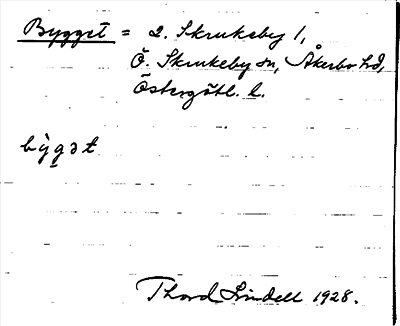 Bygget = 2. Skrukeby 1,
Ö. Skrukeby sn, Åkerbo hd,
Östergötl. l.
bỳgət
Thord Lindell 1928.